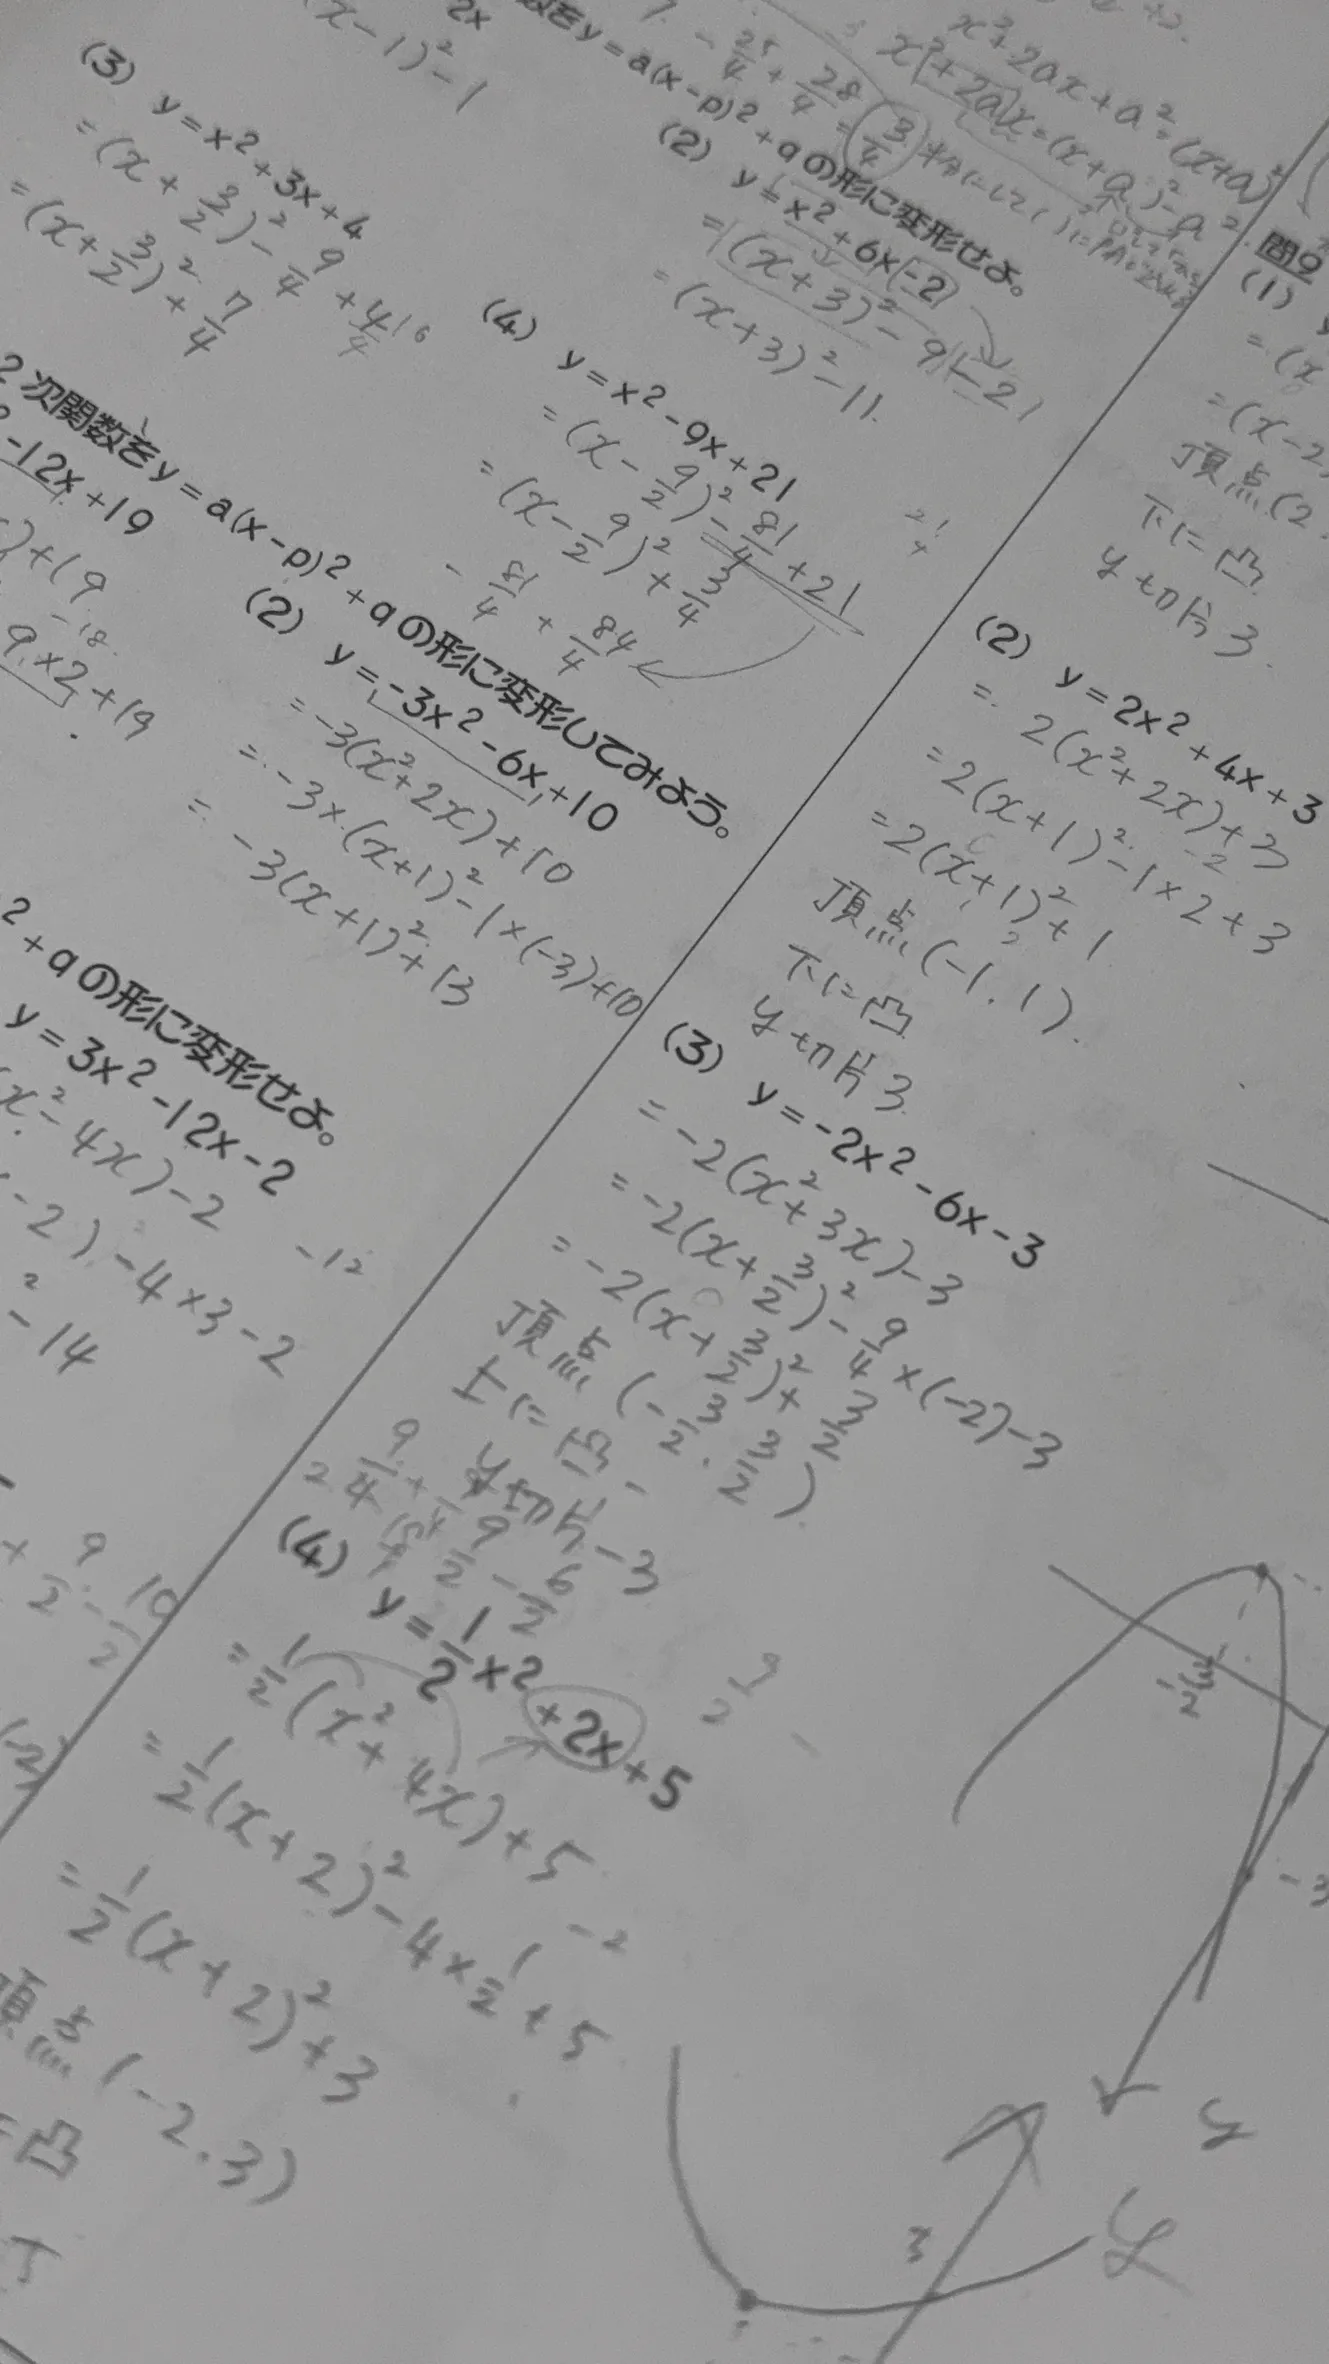 (x-1)²-1
(3) y=x²+3x+4
=(x+3/2)²-9/4+4
=(x+3/2)²+7/4
x²+2ax+a²=(x+a)²
x²+2ax=(x+a)²-a²
-25/4+28/4=3/4
y=a(x-p)²+qの形に変形せよ。
(2) y=x²+6x-2
=(x+3)²-9-2
=(x+3)²-11
(4) y=x²-9x+21
=(x-9/2)²-81/4+21
=(x-9/2)²+3/4
-81/4+84/4
2次関数をy=a(x-p)²+qの形に変形してみよう。
-12x+19
+19
-18
9×2+19
(2) y=-3x²-6x+10
=-3(x²+2x)+10
=-3×(x+1)²-1×(-3)+10
=-3(x+1)²+13
²+qの形に変形せよ。
y=3x²-12x-2
x²-4x)-2
-2)-4×3-2
-12
²-14
問9
(1)
=(x
=(x-2)
頂点(2
下に凸
y切片3
(2) y=2x²+4x+3
=2(x²+2x)+3
=2(x+1)²-1×2+3
-2
=2(x+1)²+1
頂点(-1.1)
下に凸
y切片3
(3) y=-2x²-6x-3
=-2(x²+3x)-3
=-2(x+3/2)²-9/4×(-2)-3
=-2(x+3/2)²+3/2
頂点(-3/2.3/2)
上に凸
y切片-3
9/2-6/2
(4) y=1/2x²+2x+5
=1/2(x²+4x)+5
=1/2(x+2)²-4×1/2+5
-2
=1/2(x+2)²+3
頂点(-2.3)
凸
-3/2
-3
y
y
3